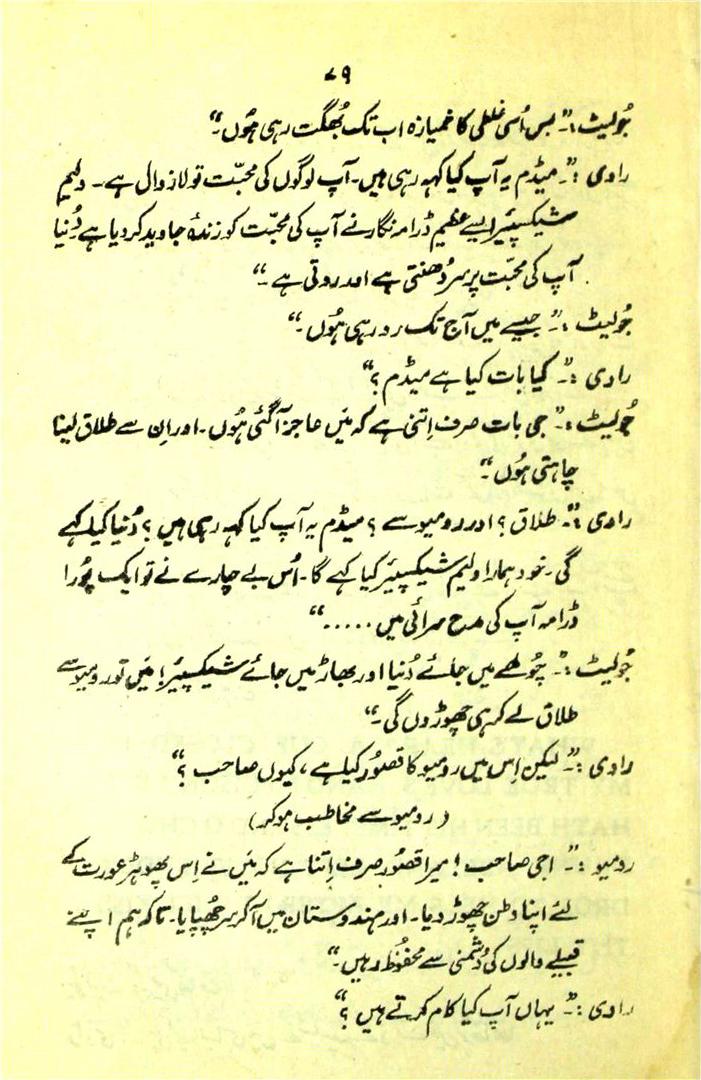 ۷۹
جُولیٹ :۔ ”بس اُسی غلطی کا خمیازہ اب تک بُھگت رہی ہُوں۔“
راوی :۔ ”میڈم یہ آپ کیا کہہ رہی ہیں۔ آپ لوگوں کی محبّت تو لازوال ہے۔ ولیم
شیکسپئیر ایسے عظیم ڈرامہ نگار نے آپ کی محبّت کو زندۂ جاوید کر دیا ہے دُنیا
آپ کی محبّت پر سر دُھنتی ہے اور روتی ہے۔“
جُولیٹ :۔ ”جیسے میں آج تک رو رہی ہُوں۔“
راوی :۔ ”کیا بات کیا ہے میڈم ؟“
جُولیٹ :۔ ”جی بات صرف اِتنی ہے کہ مَیں عاجز آ گئی ہُوں۔ اور اِن سے طلاق لینا
چاہتی ہُوں۔“
راوی :۔ ”طلاق ؟ اور رومیو سے ؟ میڈم یہ آپ کیا کہہ رہی ہیں ؟ دُنیا کیا کہے
گی۔ خود ہمارا ولیم شیکسپیئر کیا کہے گا۔ اُس بے چارے نے تو ایک پُورا
ڈرامہ آپ کی مدح سرائی میں .....“
جُولیٹ :۔ ”چُولھے میں جائے دُنیا اور بھاڑ میں جائے شیکسپیئر! مَیں تو رومیو سے
طلاق لے کر ہی چھوڑوں گی۔“
راوی :۔ ”لیکن اِس میں رومیو کا قصُور کیا ہے ، کیوں صاحب ؟“
(رومیو سے مخاطب ہو کر)
رومیو :۔ ”اجی صاحب ! میرا قصُور صرف اِتنا ہے کہ مَیں نے اِس پھوہڑ عورت کے
لئے اپنا وطن چھوڑ دیا۔ اور ہندوستان میں آ کر سر چُھپایا۔ تاکہ ہم اپنے
قبیلے والوں کی دُشمنی سے محفُوظ رہیں۔“
راوی :۔ ”یہاں آپ کیا کام کرتے ہیں ؟“